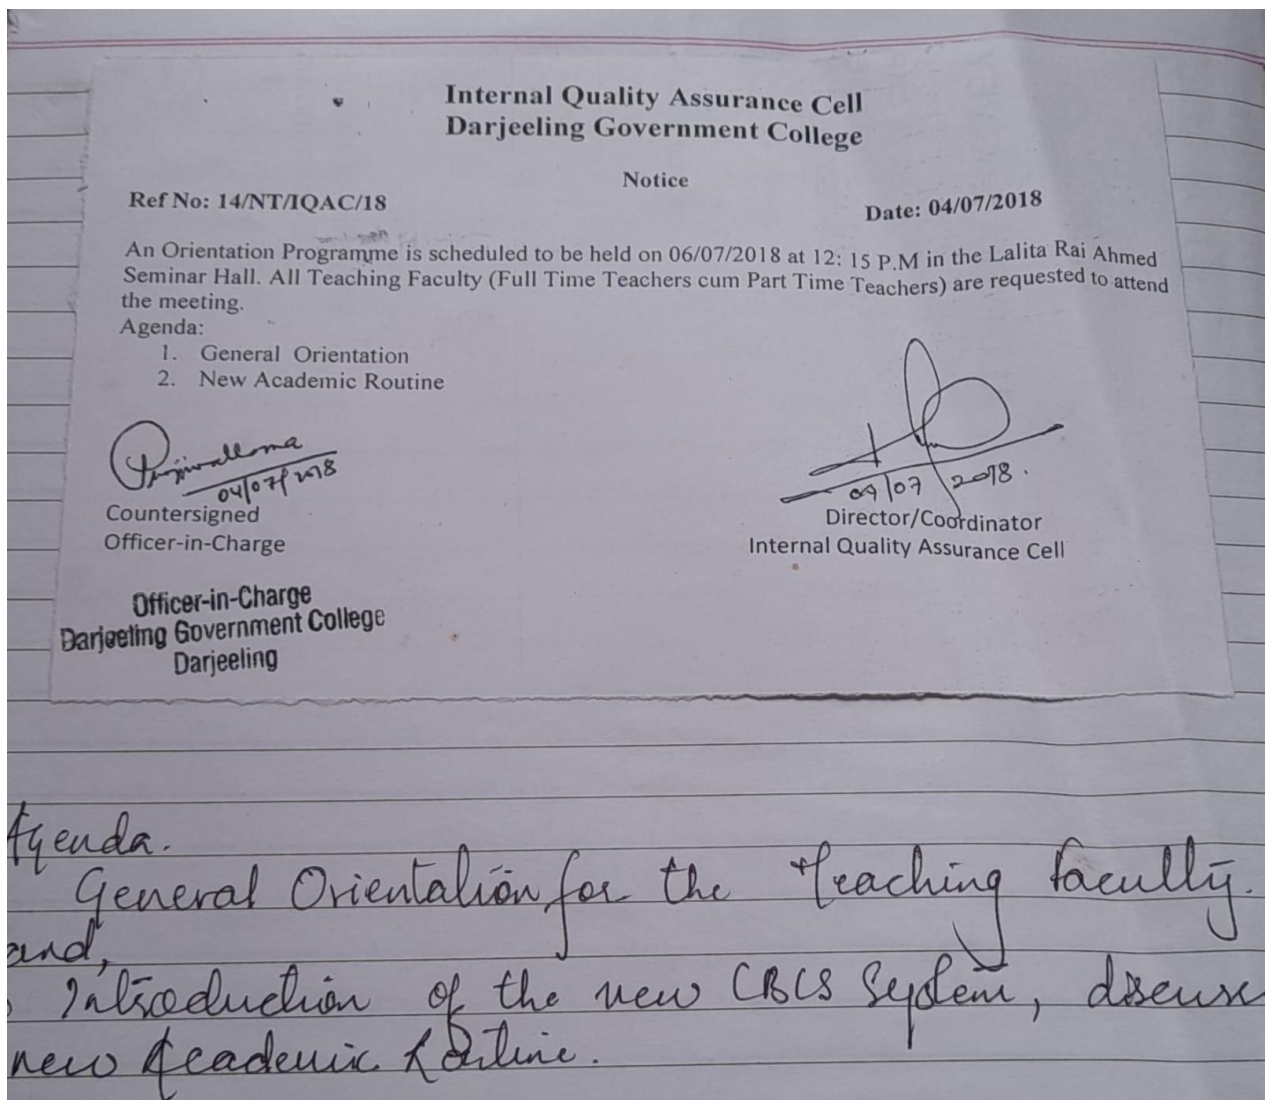 Internal Quality Assurance Cell
Darjeeling Government College
Notice
Ref No: 14/NT/IQAC/18
Date: 04/07/2018
An Orientation Programme is scheduled to be held on 06/07/2018 at 12: 15 P.M in the Lalita Rai Ahmed
Seminar Hall. All Teaching Faculty (Full Time Teachers cum Part Time Teachers) are requested to attend
the meeting.
Agenda:
1. General Orientation
2. New Academic Routine
04/07/2018
04/07/2018.
Countersigned
Officer-in-Charge
Director/Coordinator
Internal Quality Assurance Cell
Officer-in-Charge
Darjeeling Government College
Darjeeling
Agenda.
General Orientation for the Teaching faculty.
and,
Introduction of the new CBCS System, discuss
new Academic Routine.